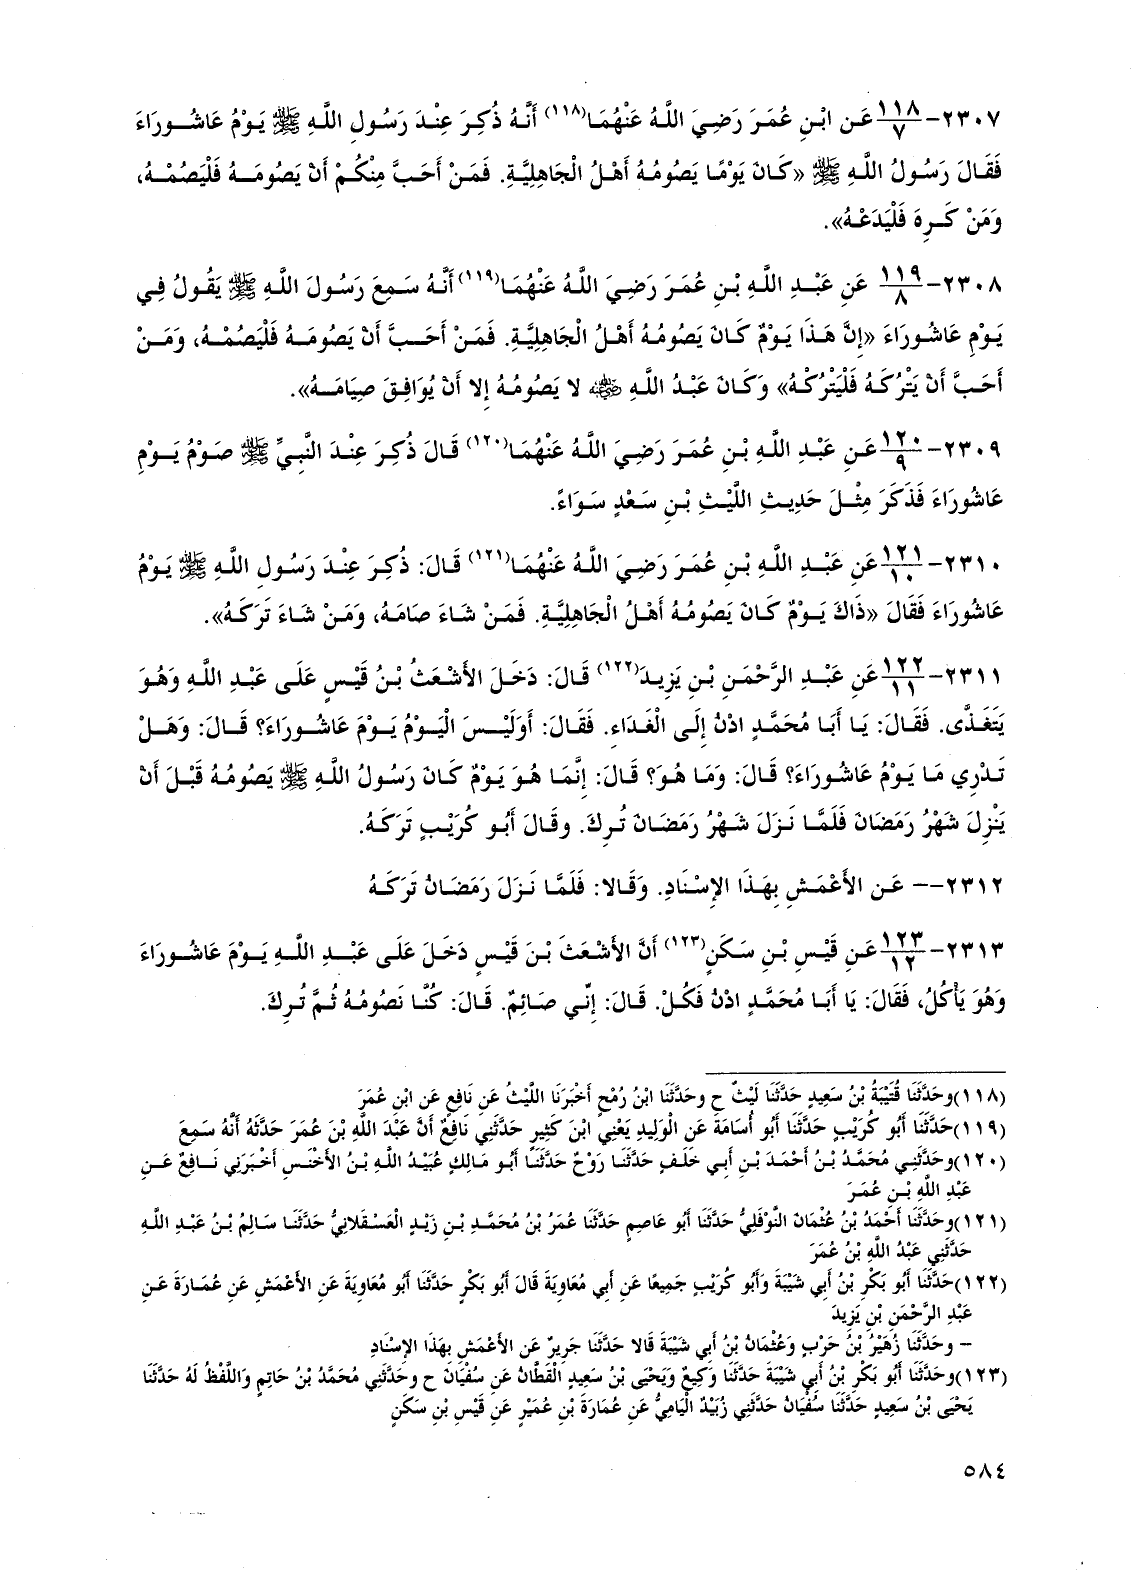 ٢٣٠٧-١١٨/٧ عَنِ ابْنِ عُمَرَ رَضِيَ اللَّهُ عَنْهُمَا(١١٨) أَنَّهُ ذُكِرَ عِنْدَ رَسُولِ اللَّهِ ﷺ يَوْمُ عَاشُورَاءَ
فَقَالَ رَسُولُ اللَّهِ ﷺ «كَانَ يَوْمًا يَصُومُهُ أَهْلُ الْجَاهِلِيَّةِ. فَمَنْ أَحَبَّ مِنْكُمْ أَنْ يَصُومَهُ فَلْيَصُمْهُ،
وَمَنْ كَرِهَ فَلْيَدَعْهُ».
٢٣٠٨-١١٩/٨ عَنِ عَبْدِ اللَّهِ بْنِ عُمَرَ رَضِيَ اللَّهُ عَنْهُمَا(١١٩) أَنَّهُ سَمِعَ رَسُولَ اللَّهِ ﷺ يَقُولُ فِي
يَوْمِ عَاشُورَاءَ «إِنَّ هَذَا يَوْمٌ كَانَ يَصُومُهُ أَهْلُ الْجَاهِلِيَّةِ. فَمَنْ أَحَبَّ أَنْ يَصُومَهُ فَلْيَصُمْهُ، وَمَنْ
أَحَبَّ أَنْ يَتْرُكَهُ فَلْيَتْرُكْهُ» وَكَانَ عَبْدُ اللَّهِ ﷺ لا يَصُومُهُ إِلا أَنْ يُوَافِقَ صِيَامَهُ».
٢٣٠٩-١٢٠/٩ عَنِ عَبْدِ اللَّهِ بْنِ عُمَرَ رَضِيَ اللَّهُ عَنْهُمَا(١٢٠) قَالَ ذُكِرَ عِنْدَ النَّبِيِّ ﷺ صَوْمُ يَوْمِ
عَاشُورَاءَ فَذَكَرَ مِثْلَ حَدِيثِ اللَّيْثِ بْنِ سَعْدٍ سَوَاءً.
٢٣١٠-١٢١/١٠ عَنِ عَبْدِ اللَّهِ بْنِ عُمَرَ رَضِيَ اللَّهُ عَنْهُمَا(١٢١) قَالَ: ذُكِرَ عِنْدَ رَسُولِ اللَّهِ ﷺ يَوْمُ
عَاشُورَاءَ فَقَالَ «ذَاكَ يَوْمٌ كَانَ يَصُومُهُ أَهْلُ الْجَاهِلِيَّةِ. فَمَنْ شَاءَ صَامَهُ، وَمَنْ شَاءَ تَرَكَهُ».
٢٣١١-١٢٢/١١ عَنِ عَبْدِ الرَّحْمَنِ بْنِ يَزِيدَ(١٢٢) قَالَ: دَخَلَ الأَشْعَثُ بْنُ قَيْسٍ عَلَى عَبْدِ اللَّهِ وَهُوَ
يَتَغَدَّى. فَقَالَ: يَا أَبَا مُحَمَّدٍ ادْنُ إِلَى الْغَدَاءِ. فَقَالَ: أَوَلَيْسَ الْيَوْمُ يَوْمَ عَاشُورَاءَ؟ قَالَ: وَهَلْ
تَدْرِي مَا يَوْمُ عَاشُورَاءَ؟ قَالَ: وَمَا هُوَ؟ قَالَ: إِنَّمَا هُوَ يَوْمٌ كَانَ رَسُولُ اللَّهِ ﷺ يَصُومُهُ قَبْلَ أَنْ
يَنْزِلَ شَهْرُ رَمَضَانَ فَلَمَّا نَزَلَ شَهْرُ رَمَضَانَ تُرِكَ. وقَالَ أَبُو كُرَيْبٍ تَرَكَهُ.
٢٣١٢-- عَنِ الأَعْمَشِ بِهَذَا الإِسْنَادِ. وَقَالا: فَلَمَّا نَزَلَ رَمَضَانُ تَرَكَهُ
٢٣١٣-١٢٣/١٢ عَنِ قَيْسِ بْنِ سَكَنٍ(١٢٣) أَنَّ الأَشْعَثَ بْنَ قَيْسٍ دَخَلَ عَلَى عَبْدِ اللَّهِ يَوْمَ عَاشُورَاءَ
وَهُوَ يَأْكُلُ، فَقَالَ: يَا أَبَا مُحَمَّدٍ ادْنُ فَكُلْ. قَالَ: إِنِّي صَائِمٌ. قَالَ: كُنَّا نَصُومُهُ ثُمَّ تُرِكَ.
(١١٨)وحَدَّثَنَا قُتَيْبَةُ بْنُ سَعِيدٍ حَدَّثَنَا لَيْثٌ ح وحَدَّثَنَا ابْنُ رُمْحٍ أَخْبَرَنَا اللَّيْثُ عَنِ نَافِعٍ عَنِ ابْنِ عُمَرَ
(١١٩)حَدَّثَنَا أَبُو كُرَيْبٍ حَدَّثَنَا أَبُو أُسَامَةَ عَنِ الْوَلِيدِ يَعْنِي ابْنَ كَثِيرٍ حَدَّثَنِي نَافِعٌ أَنَّ عَبْدَ اللَّهِ بْنَ عُمَرَ حَدَّثَهُ أَنَّهُ سَمِعَ
(١٢٠)وحَدَّثَنِي مُحَمَّدُ بْنُ أَحْمَدَ بْنِ أَبِي خَلَفٍ حَدَّثَنَا رَوْحٌ حَدَّثَنَا أَبُو مَالِكٍ عُبَيْدُ اللَّهِ بْنُ الأَخْنَسِ أَخْبَرَنِي نَافِعٌ عَنِ
عَبْدِ اللَّهِ بْنِ عُمَرَ
(١٢١)وحَدَّثَنَا أَحْمَدُ بْنُ عُثْمَانَ النَّوْفَلِيُّ حَدَّثَنَا أَبُو عَاصِمٍ حَدَّثَنَا عُمَرُ بْنُ مُحَمَّدِ بْنِ زَيْدٍ الْعَسْقَلانِيُّ حَدَّثَنَا سَالِمُ بْنُ عَبْدِ اللَّهِ
حَدَّثَنِي عَبْدُ اللَّهِ بْنُ عُمَرَ
(١٢٢)حَدَّثَنَا أَبُو بَكْرِ بْنُ أَبِي شَيْبَةَ وَأَبُو كُرَيْبٍ جَمِيعًا عَنِ أَبِي مُعَاوِيَةَ قَالَ أَبُو بَكْرٍ حَدَّثَنَا أَبُو مُعَاوِيَةَ عَنِ الأَعْمَشِ عَنِ عُمَارَةَ عَنِ
عَبْدِ الرَّحْمَنِ بْنِ يَزِيدَ
- وحَدَّثَنَا زُهَيْرُ بْنُ حَرْبٍ وَعُثْمَانُ بْنُ أَبِي شَيْبَةَ قَالا حَدَّثَنَا جَرِيرٌ عَنِ الأَعْمَشِ بِهَذَا الإِسْنَادِ
(١٢٣)وحَدَّثَنَا أَبُو بَكْرِ بْنُ أَبِي شَيْبَةَ حَدَّثَنَا وَكِيعٌ وَيَحْيَى بْنُ سَعِيدٍ الْقَطَّانُ عَنِ سُفْيَانَ ح وحَدَّثَنِي مُحَمَّدُ بْنُ حَاتِمٍ وَاللَّفْظُ لَهُ حَدَّثَنَا
يَحْيَى بْنُ سَعِيدٍ حَدَّثَنَا سُفْيَانُ حَدَّثَنِي زُبَيْدٌ الْيَامِيُّ عَنِ عُمَارَةَ بْنِ عُمَيْرٍ عَنِ قَيْسِ بْنِ سَكَنٍ
٥٨٤